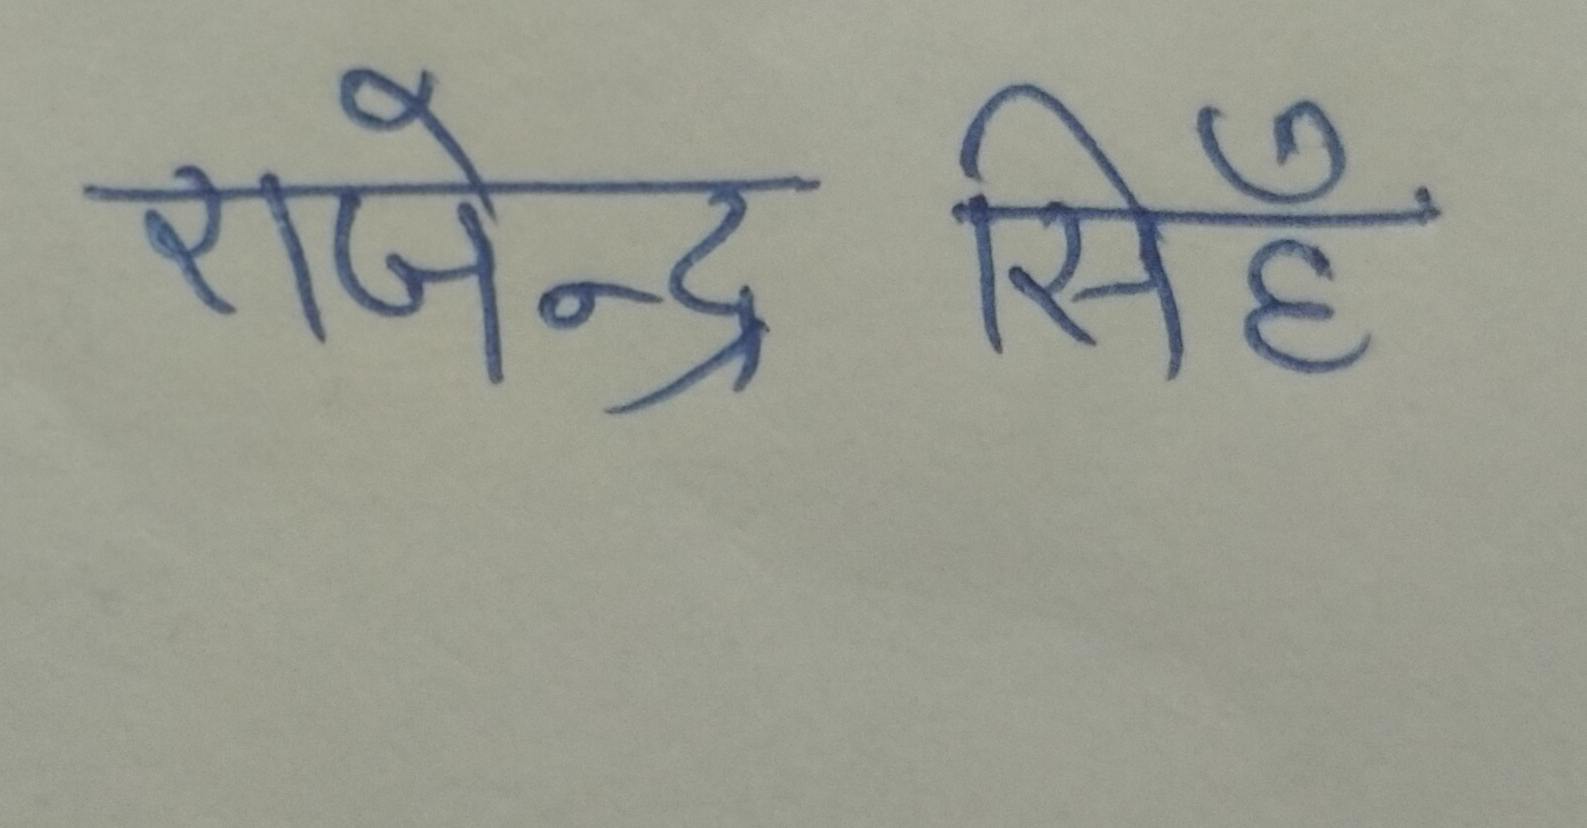 राजेन्द्र सिहँ